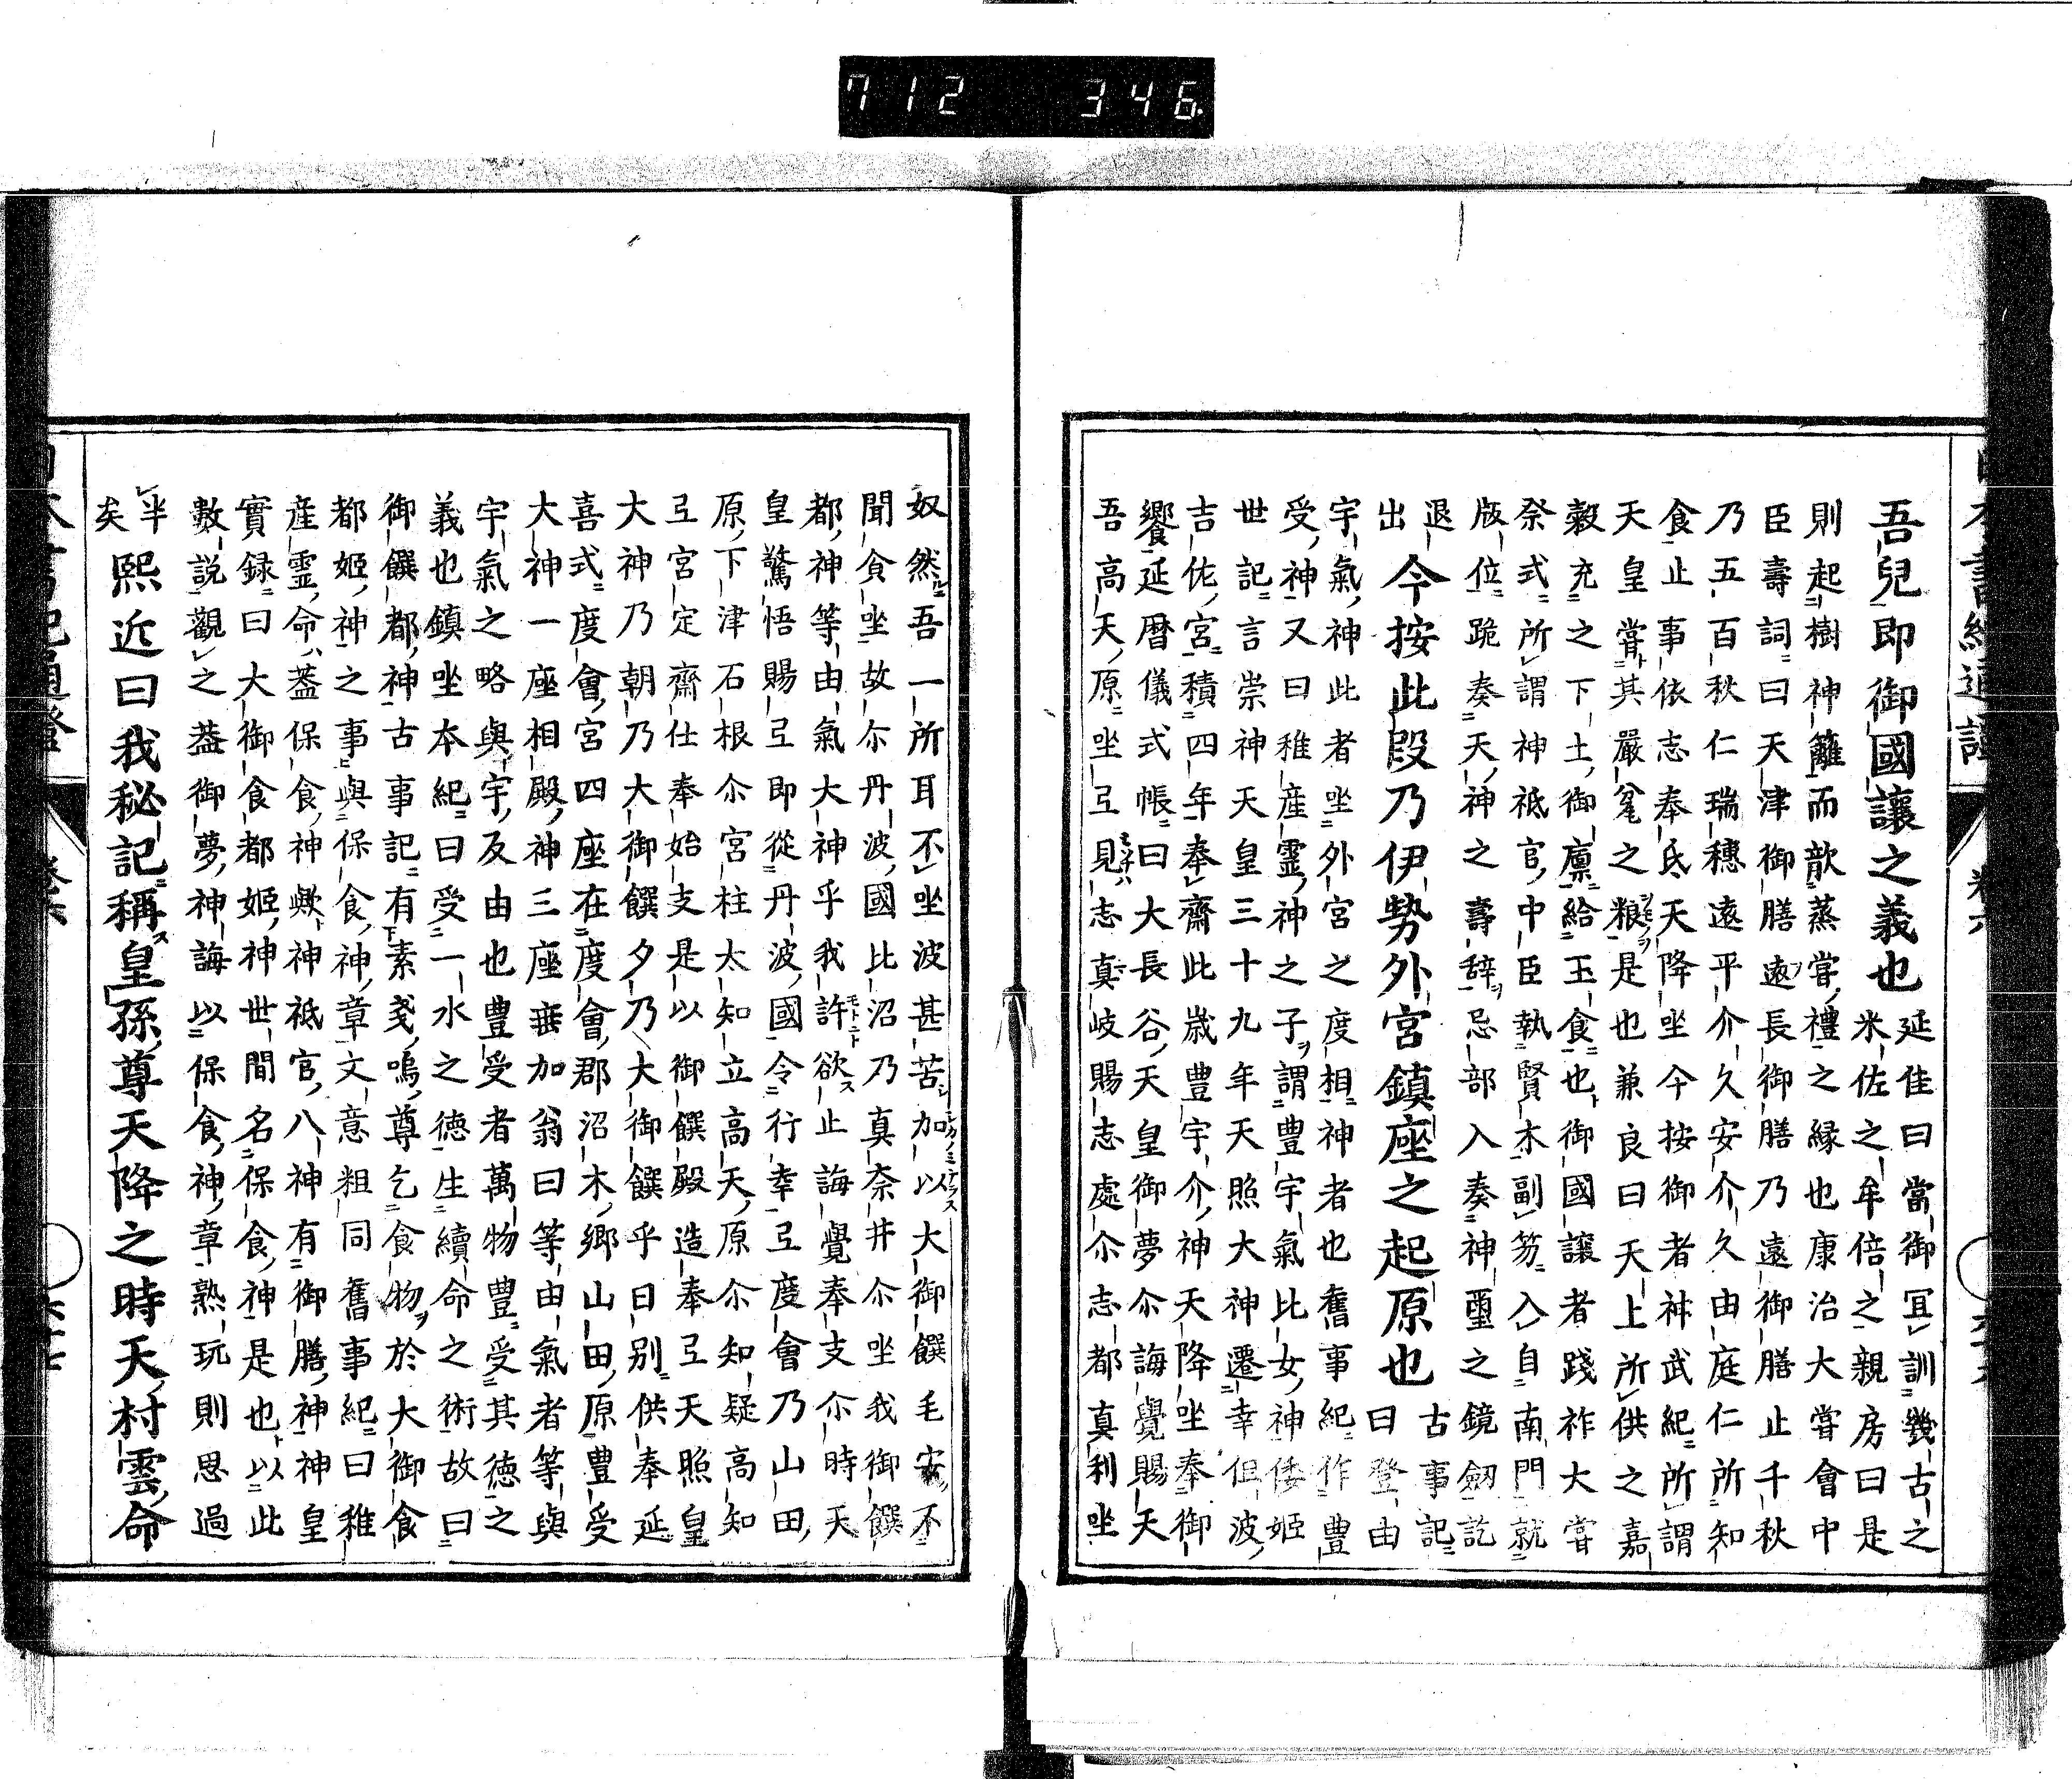 712 346
吾兒即御國讓之義也 延佳曰當御冝訓幾古之
米佐之牟倍之親房曰是
則起樹神籬而歆蒸嘗禮之縁也康治大嘗會中
臣壽詞曰天津御膳遠長御膳乃遠御膳止千秋
乃五百秋仁瑞穗遠平介久安介久由庭仁所知
食止事依志奉氐天降坐今按御者神武紀所謂
天皇嘗其嚴瓮之粮是也兼良曰天上所供之嘉
穀充之下土御廪給玉食也御國譲者踐祚大甞
祭式所謂神祇官中臣執賢木副笏入自南門就
版位跪奏天神之壽辞忌部入奏神璽之鏡劔訖
退
出 今按此段乃伊勢外宮鎮座之起原也 古事記
曰登由
宇氣神此者坐外宮之度相神者也舊事紀作豊
受神又曰稚産靈神之子謂豊宇氣比女神倭姫
世記言崇神天皇三十九年天照大神遷幸但波
吉佐宮積四年奉齋此歳豊宇介神天降坐奉御
饗延暦儀式帳曰大長谷天皇御夢尒誨覺賜天
吾高天原坐弖見志真岐賜志處尒志都真利坐
奴然吾一所耳不坐波甚苦加以大御饌毛安不
聞食坐故尒丹波國比沼乃真奈井尒坐我御饌
都神等由氣大神乎我許欲止誨覺奉支尒時天
皇驚悟賜弖即從丹波國令行幸弖度會乃山田
原下津石根尒宮柱太知立高天原尒知疑高知
弖宮定齋仕奉始支是以御饌殿造奉弖天照皇
大神乃朝乃大御饌夕乃大御饌乎日別供奉延
喜式度會宮四座在度會郡沼木郷山田原豊受
大神一座相殿神三座無加翁曰等由氣者等與
宇氣之略與宇反由也豊受者萬物豊受其徳之
義也鎮坐本紀曰受一水之徳生續命之術故曰
御饌都神古事記有素戔嗚尊乞食物於大御食
都姫神之事與保食神章文意粗同舊事紀曰稚
産靈命蓋保食神歟神祇官八神有御膳神神皇
實録曰大御食都姫神世間名保食神是也以此
數説觀之蓋御夢神誨以保食神章熟玩則思過
半
矣 熙近曰我秘記稱皇孫尊天降之時天村雲命